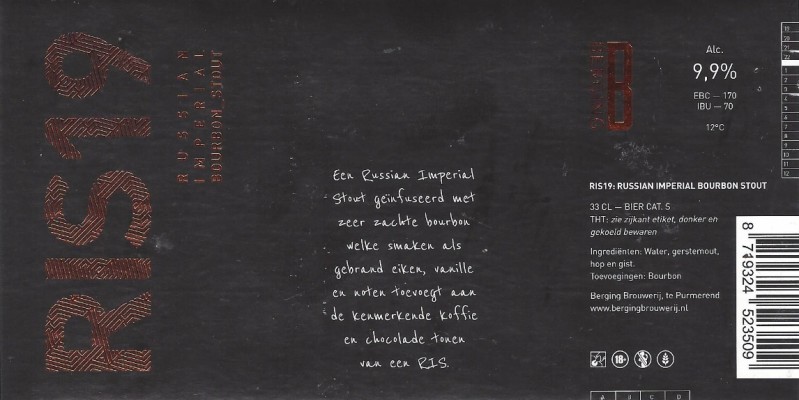 RIS19
RUSSIAN
IMPERIAL
BOURBON_STOUT
Een Russian Imperial
Stout geïnfuseerd met
zeer zachte bourbon
welke smaken als
gebrand eiken, vanille
en noten toevoegt aan
de kenmerkende koffie
en chocolade tonen
van een RIS.
B
Alc.
9,9%
EBC — 170
IBU — 70
12°C
RIS19: RUSSIAN IMPERIAL BOURBON STOUT
33 CL — BIER CAT. S
THT: zie zijkant etiket, donker en
gekoeld bewaren
Ingrediënten: Water, gerstemout,
hop en gist.
Toevoegingen: Bourbon
Berging Brouwerij, te Purmerend
www.bergingbrouwerij.nl
18+
A B C D
19
20
21
22
1
2
3
4
5
6
7
8
9
10
11
12
8 719324 523509